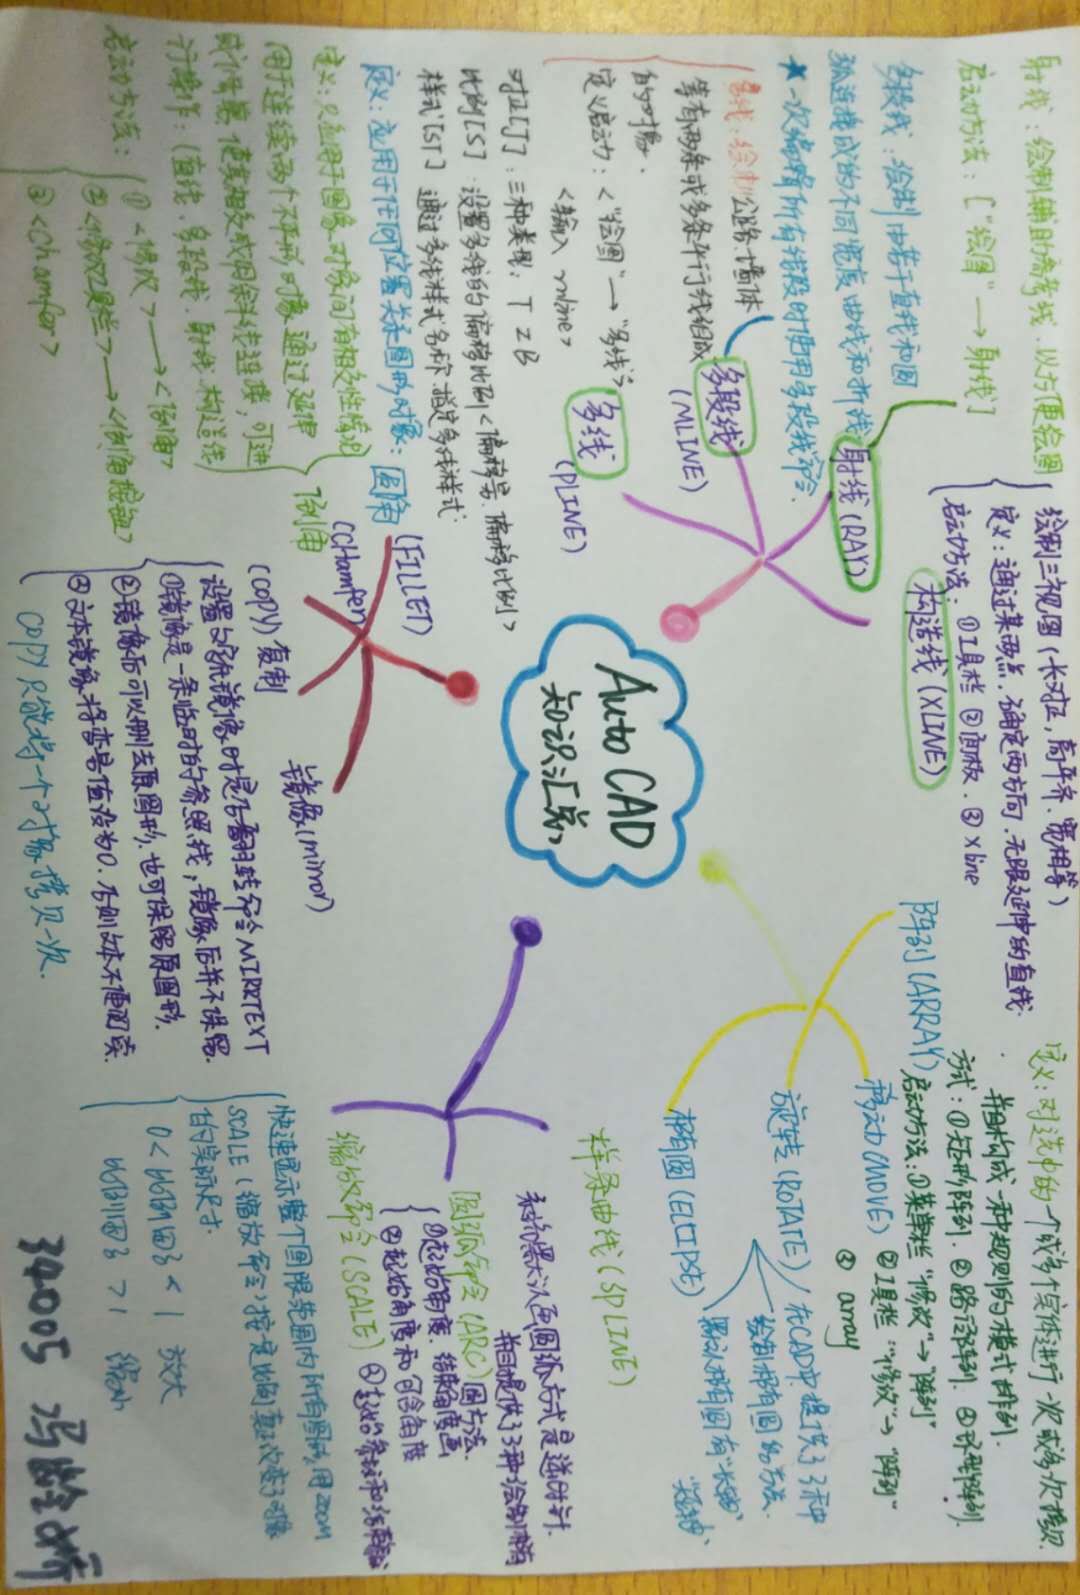 Auto CAD
知识汇总
射线：绘制辅助参考线，以方便绘图
启动方法：["绘图"→射线]
多段线：绘制由若干直线和圆
弧连接成的不同宽度曲线和折线
★一次编辑所有线段时使用多段线命令.
多线：绘制公路、墙体
等有两条或多条平行线组成
的对象.
定义启动：<"绘图"→"多线">
<输入 mline>
对正[J]：三种类型：T Z B
比例[S]：设置多线的偏移比例<偏移量、偏移比例>
样式[ST] 通过多线样式名称指定多线样式.
射线(RAY)
多段线
(MLINE)
多线
(PLINE)
构造线(XLINE)
绘制三视图(长对正,高平齐,宽相等)
定义：通过某两点,确定两方向,无限延伸的直线.
启动方法：①工具栏 ②面板.③xline
定义：应用于任何位置关系图形对象：圆角
(FILLET)
定义：只应用于图像对象间有相交性情况
用于连续两个不平形对象通过延伸
行操作：(直线、多段线、射线、构造线)
启动方法：①<修改>→<倒角>
②<修改工具栏>→<倒角按钮>
③<Chamfer>
倒角
(CHamfer)
(COPY)复制
镜像(mirror)
设置文字镜像时是否翻转命令MIRRTEXT
①镜像是一条临时的参照线；镜像后并不保留.
②镜像后可以删去原图形,也可保留原图形.
③文本镜像,将变量值设为0.否则文本不便阅读
COPY只能将一个对象拷贝一次.
阵列(ARRAY)
定义：对选中的一个或多个实体进行一次或多次拷贝
并构成一种规则的模式排列.
方式：①矩形阵列.②路径阵列.③环形阵列.
启动方法：①菜单栏"修改"→"阵列"
②工具栏："修改"→"阵列"
③ array
移动(MOVE)
旋转(ROTATE)
在CAD中提供了3种
绘制椭圆的方法.
默认椭圆有"长轴"
"短轴"、
椭圆(ELLIPSE)
样条曲线(SPLINE)
系统默认画圆弧方式是逆时针.
并且提供了3种绘制椭
圆弧命令(ARC)圆方法.
①起始角度、结束角度画
②起始角度和包含角度
③起始参数和
缩放命令(SCALE)
快速显示整个图限范围内所有图形,用ZOOM
SCALE(缩放命令)按定比例真改变了对象
的实际尺寸.
0<比例因子<1 放大
比例因子>1 缩小
34005